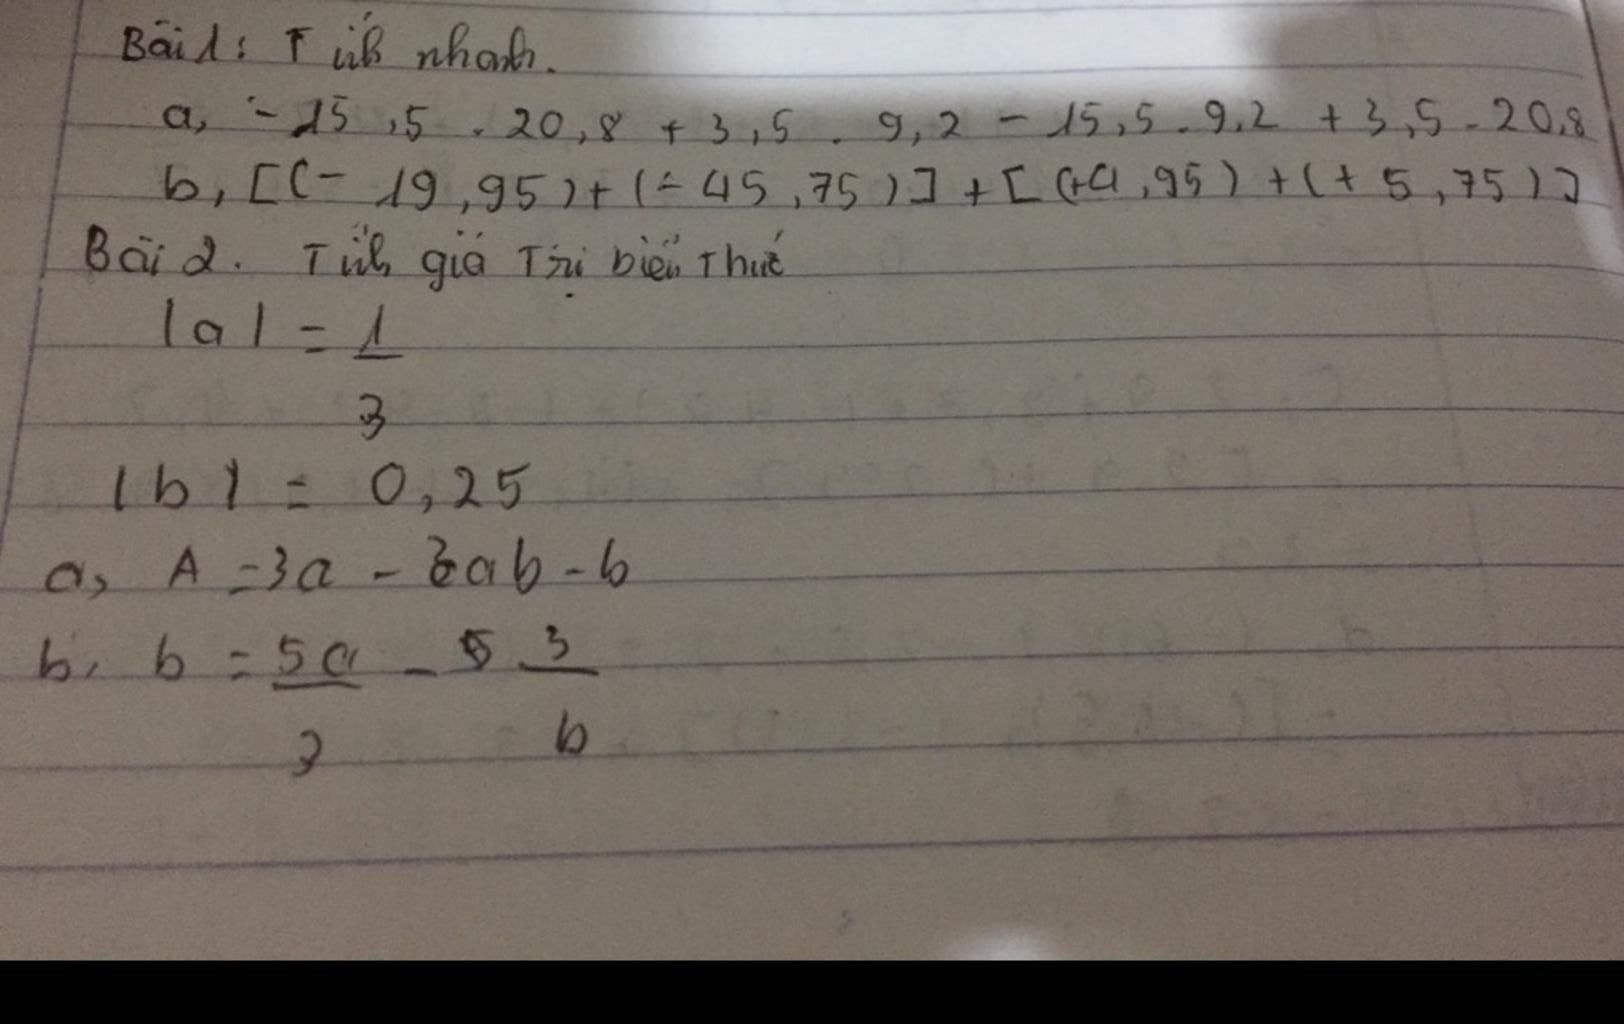 Bài 1: Tính nhanh.
a, -15,5 . 20,8 + 3,5 . 9,2 - 15,5 . 9,2 + 3,5 . 20,8
b, [(- 19,95) + (- 45,75)] + [(+4,95) + (+ 5,75)]
Bài 2. Tính giá Trị biểu Thức
|a| = 1/3
|b| = 0,25
a, A = 3a - 3ab - b
b, b = 5a/3 - 3/b